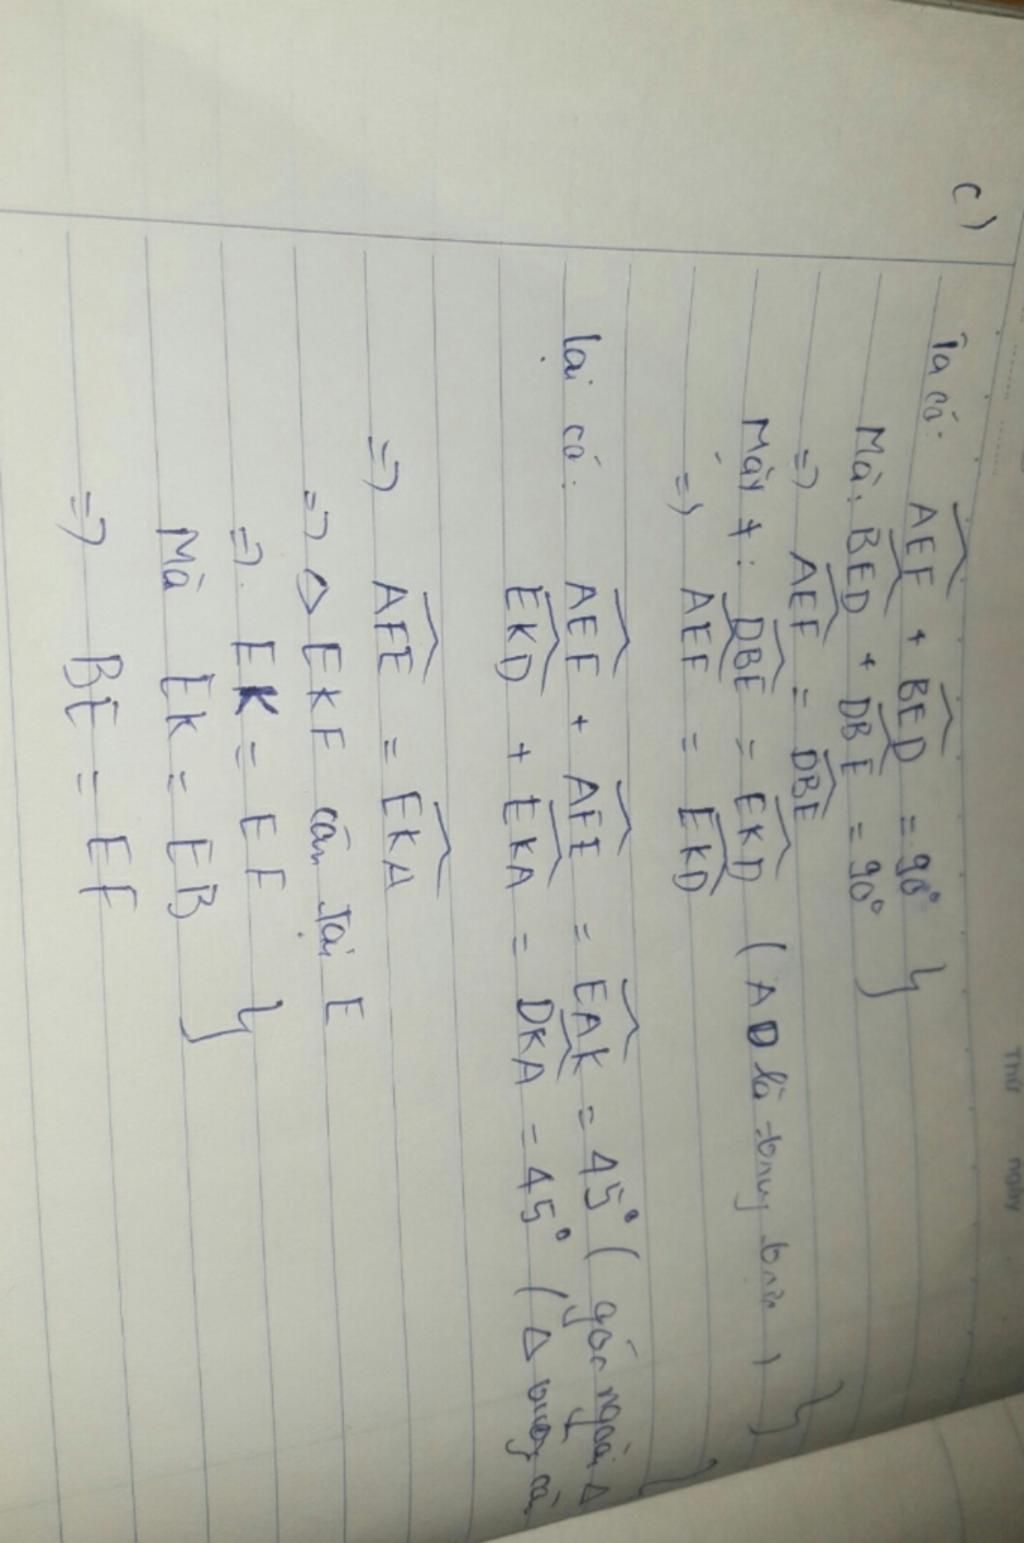 c)
Ta có: AEF + BED = 90°
Mà: BED + DBE = 90°
=> AEF = DBE
Mặt ≠: DBE = EKD (AD là trung trực)
=> AEF = EKD
Lại có: AEF + AFE = EAK = 45° (góc ngoài Δ
EKD + EKA = DKA = 45° (Δ vuông cân
=> AFE = EKA
=> Δ EKF cân tại E
=> EK = EF
Mà EK = EB
=> BE = EF
Thứ
ngày